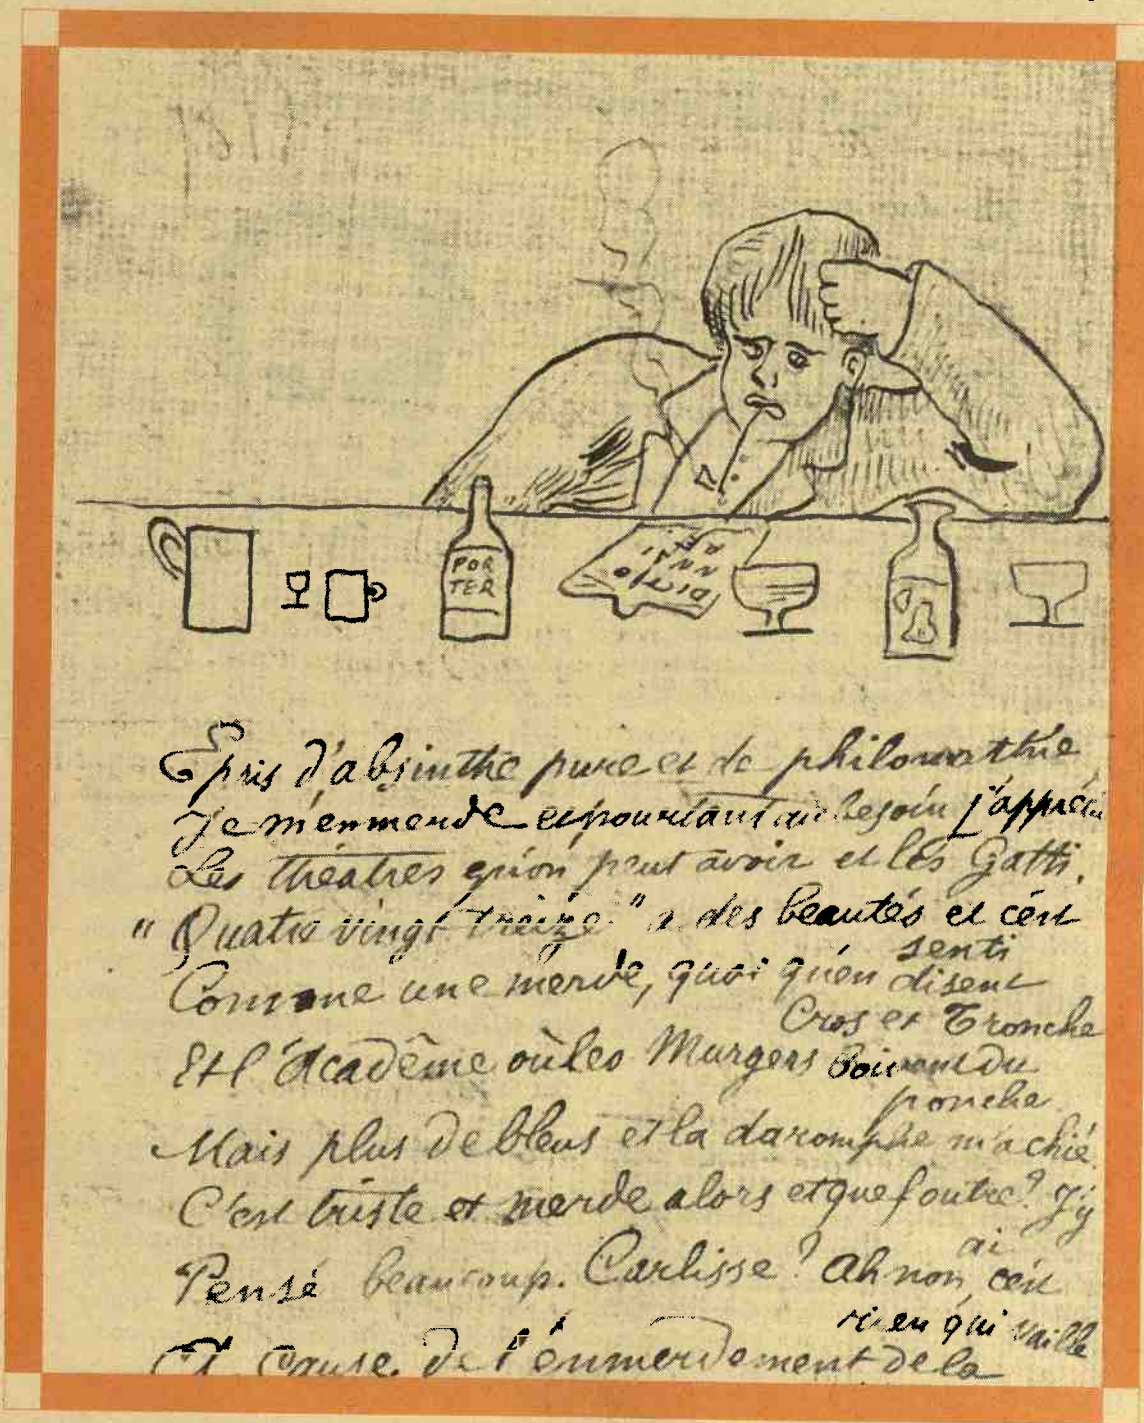 POR
TER
DICTIO
NNAI
Épris d'absinthe pure et de philomathie
Je m'emmerde et pourtant au besoin j'apprécie
Les théâtres qu'on peut avoir et les Gatti.
"Quatre vingt treize" a des beautés et c'est
senti
Comme une merde, quoi qu'en disent
Cros et Tronche
Et l'Acadême où les Murgers boivent du
ponche
Mais plus de bleus et la daromphe m'a chié.
C'est triste et merde alors et que foutre? J'y
ai
Pensé beaucoup. Carlisse? Ah non, c'est
rien qui vaille
À cause de l'emmerdement de la